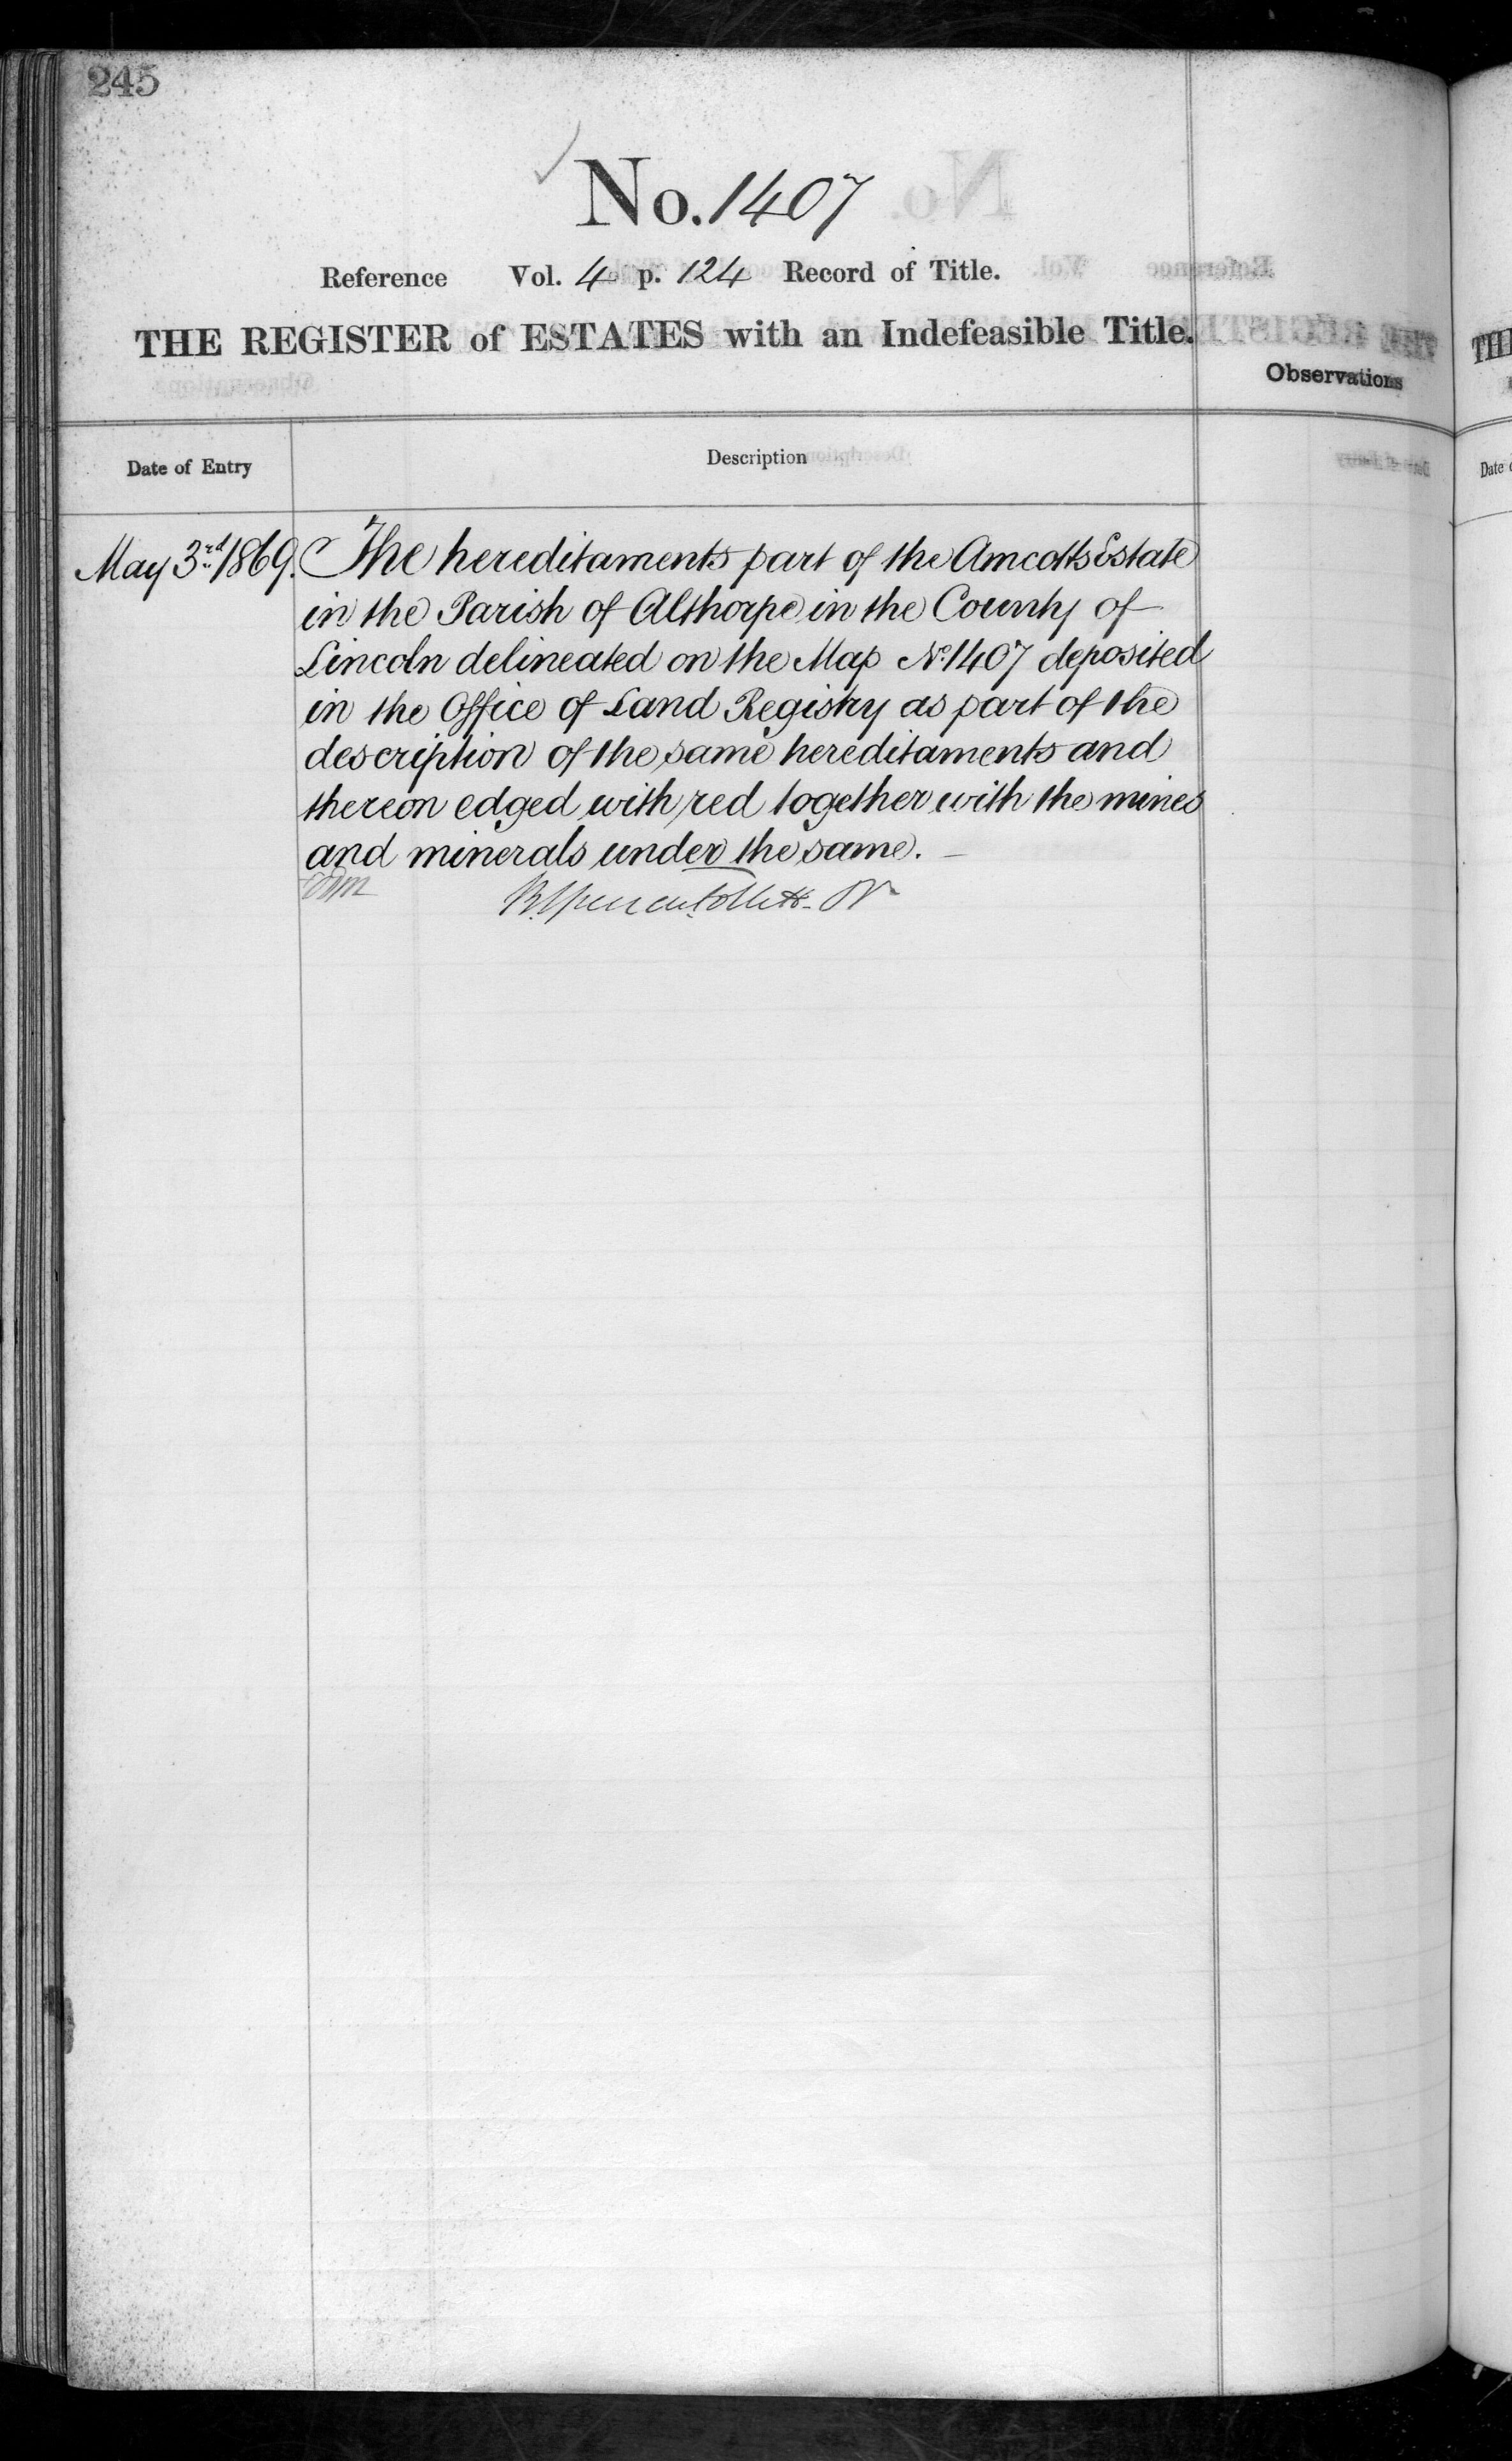 245
No. 1407
Reference Vol. 4 p. 124 Record of Title.
THE REGISTER of ESTATES with an Indefeasible Title.
Observations
Date of Entry
Description
May 3rd 1869.
The hereditaments part of the Amcotts Estate
in the Parish of Althorpe in the County of
Lincoln delineated on the Map No. 1407 deposited
in the Office of Land Registry as part of the
description of the same hereditaments and
thereon edged with red together with the mines
and minerals under the same.
THE
Date